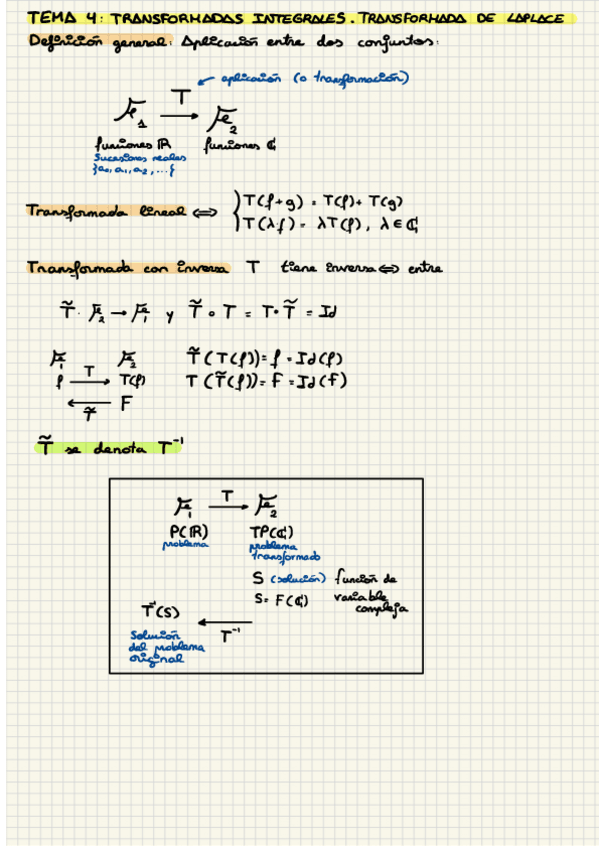 TEMA 4: TRANSFORMADAS INTEGRALES. TRANSFORMADA DE LAPLACE
Definición general: Aplicación entre dos conjuntos:
aplicación (o transformación)
T
ℱ₁ → ℱ₂
funciones ℝ funciones ℂ
Sucesiones reales
{a₀, a₁, a₂, ...}
T(f+g) = T(f) + T(g)
Transformada lineal ⟺ {
T(λ·f) = λT(f), λ ∈ ℂ
Transformada con inversa T tiene inversa ⟺ entre
T̃ · ℱ₂ → ℱ₁ y T̃ ∘ T = T · T̃ = Id
ℱ₁ ℱ₂ T̃(T(f)) = f = Id(f)
f T → T(f) T(T̃(f)) = F = Id(f)
← T̃ F
T̃ se denota T⁻¹
ℱ₁ T → ℱ₂
P(ℝ) TP(ℂ)
problema problema
transformado
S (solución) función de
S = F(ℂ) variable
compleja
T⁻¹(S) ← T⁻¹
Solución
del problema
original